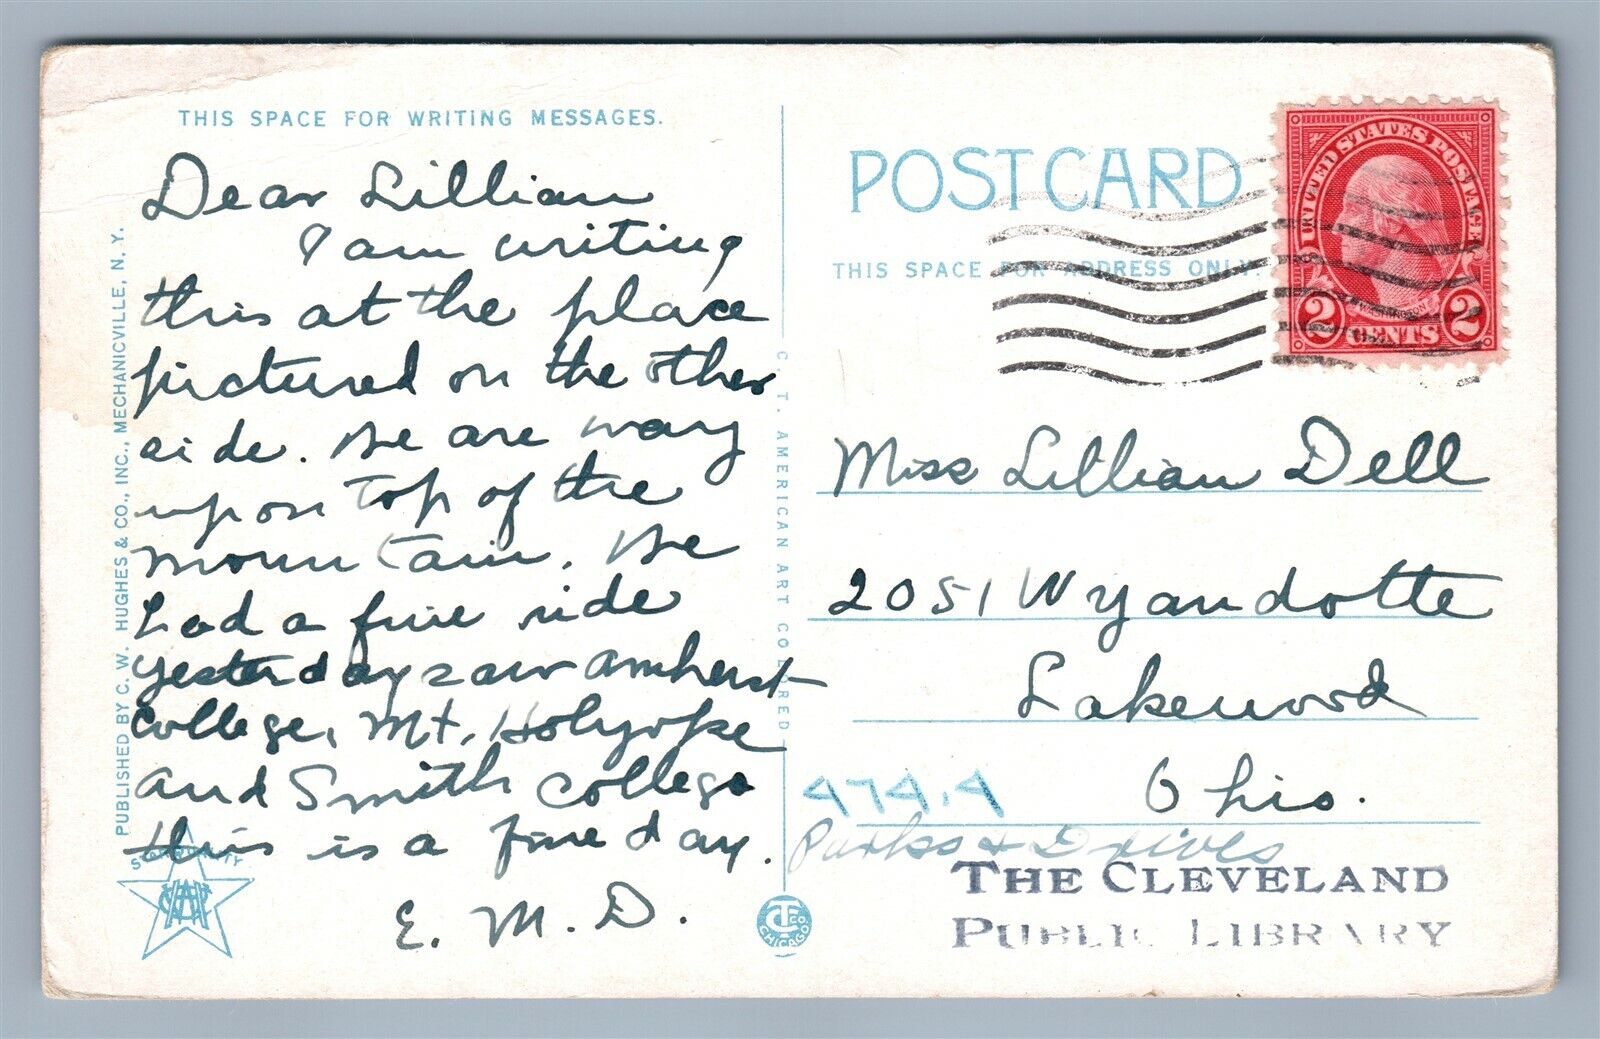 THIS SPACE FOR WRITING MESSAGES.
Dear Lillian
I am writing
this at the place
pictured on the other
side. We are way
up on top of the
mountain. We
had a fine ride
yesterday saw Amherst
College, Mt. Holyoke
and Smith College
this is a fine day.
E. M. D.
PUBLISHED BY C. W. HUGHES & CO., INC., MECHANICVILLE, N. Y.
C. T. AMERICAN ART COLORED
CT CO.
CHICAGO
POST CARD
THIS SPACE FOR ADDRESS ONLY.
UNITED STATES POSTAGE
WASHINGTON
2 CENTS 2
Miss Lillian Dell
2051 Wyandotte
Lakewood
Ohio.
474.4
Parks & Drives
THE CLEVELAND
PUBLIC LIBRARY